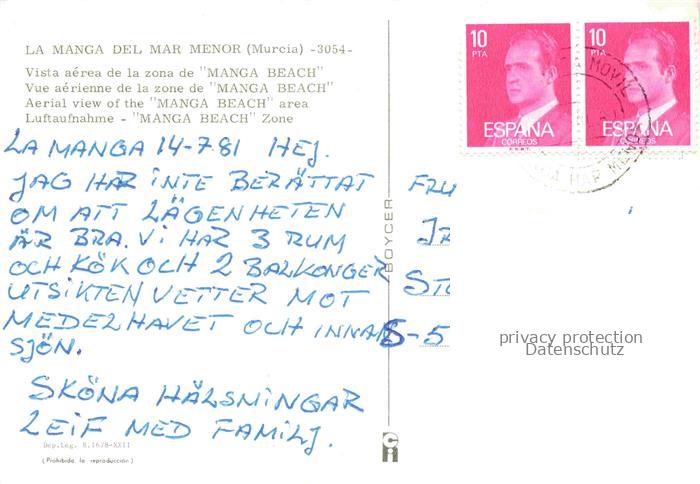 LA MANGA DEL MAR MENOR (Murcia) -3054-
Vista aérea de la zona de "MANGA BEACH"
Vue aérienne de la zone de "MANGA BEACH"
Aerial view of the "MANGA BEACH" area
Luftaufnahme - "MANGA BEACH" Zone
LA MANGA 14-7.81 HEJ.
JAG HAR INTE BERÄTTAT
OM ATT LÄGENHETEN
ÄR BRA. VI HAR 3 RUM
OCH KÖK OCH 2 BALKONGER
UTSIKTEN VETTER MOT
MEDELHAVET OCH INNAN
SJÖN.
SKÖNA HÄLSNINGAR
LEIF MED FAMILJ.
Dep. Leg. B.1678-XXII
(Prohibida la reproducción)
BOYCER
10
PTA
ESPAÑA
CORREOS
10
PTA
ESPAÑA
CORREOS
MOVIL
MAR MENOR
FRU
STO
S-5
privacy protection
Datenschutz